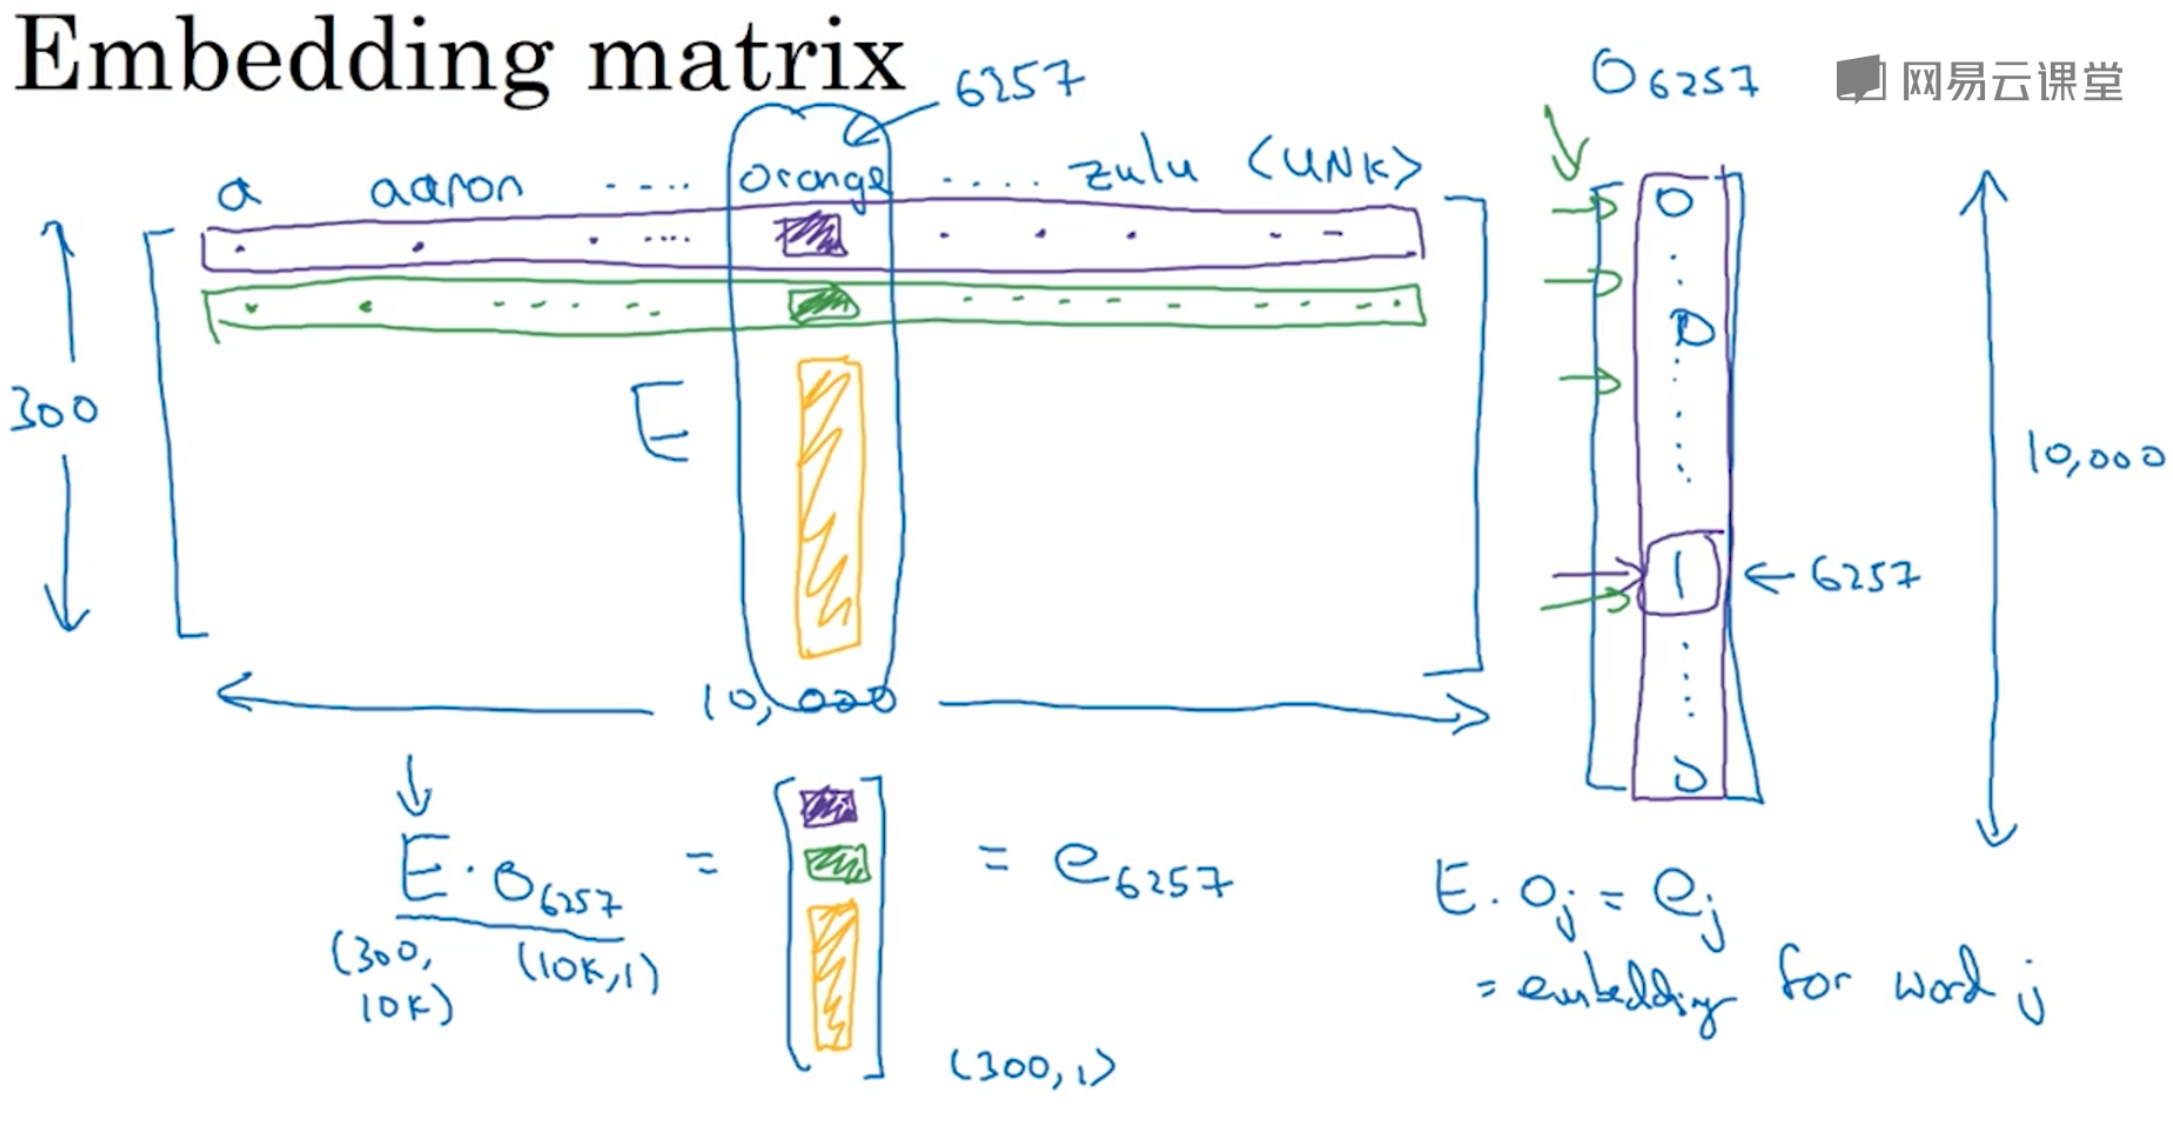 Embedding matrix
6257
O6257
网易云课堂
a aaron ---.. orange ..... zulu <UNK>
0
0
300
E
10,000
1
← 6257
10,000
0
E · O6257 = = e6257
(300, 10K)
(10K,1)
(300,1)
E · oj = ej
= embedding for word j